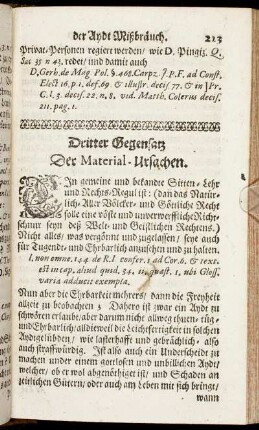 der Aydt Mißbräuch. 213
Privat-Personen regiert werden/ wie D. Pingiz. Q.
Sax 35 n 43. redet/ und damit auch
D. Gerh. de Mag Pol. §. 468. Carpz. J. P. F. ad Const.
Elect 16. p. 1. def. 69. & illustr. decis 77. & in J Pr.
C. l. 3. decis. 22. n. 8. vid. Matth. Colerus decis.
211. pag. 1.
Dritter Gegensatz
Der Material-Ursachen.
EIn gemeine und bekandte Sitten-Lehr
und Rechts-Regul ist: (dan das Natür-
lich-Aller Völcker- und Göttliche Recht
solle eine veste und unverwerffliche Richt-
schnur seyn deß Welt- und Geistlichen Rechtens.)
Nicht alles/ was vergönnt und zugelassen/ seye auch
für Tugends- und Ehrbarlich anzusehen und zu halten.
l. non omne. 144 de R. I confer. 1 ad Cor. 6. & text.
est in cap. aliud quid. 34. 11. quæst. 1. ubi Gloss.
varia adducit exempla.
Nunn aber die Ehrbarkeit mehrers/ dann die Freyheit
allzeit zu beobachten. Dahero ist zwar ein Aydt zu
schwören erlaubt/ aber darum nicht allweg thuen-rüg-
und Ehrbarlich/ alldieweil die Leichtfertigkeit in solchen
Aydt geübten/ wie lasterhafft und gebrächlich-also
auch straffwürdig. Ist also auch ein Underscheid zu
machen under einem gottlosen und unbillichen Aydt/
welcher/ ob er wol abgenöthiget ist/ und Schaden an
zeitlichen Gütern/ oder auch am Leben mit sich bringt/
wann